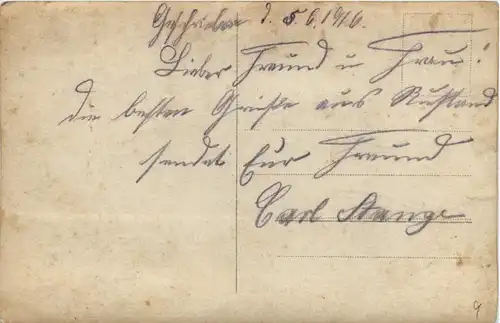 Geschrieben d. 5.6.1916.
Lieber Freund u Frau!
die besten Grüße aus Rußland
sendet Eur Freund
Carl Stange